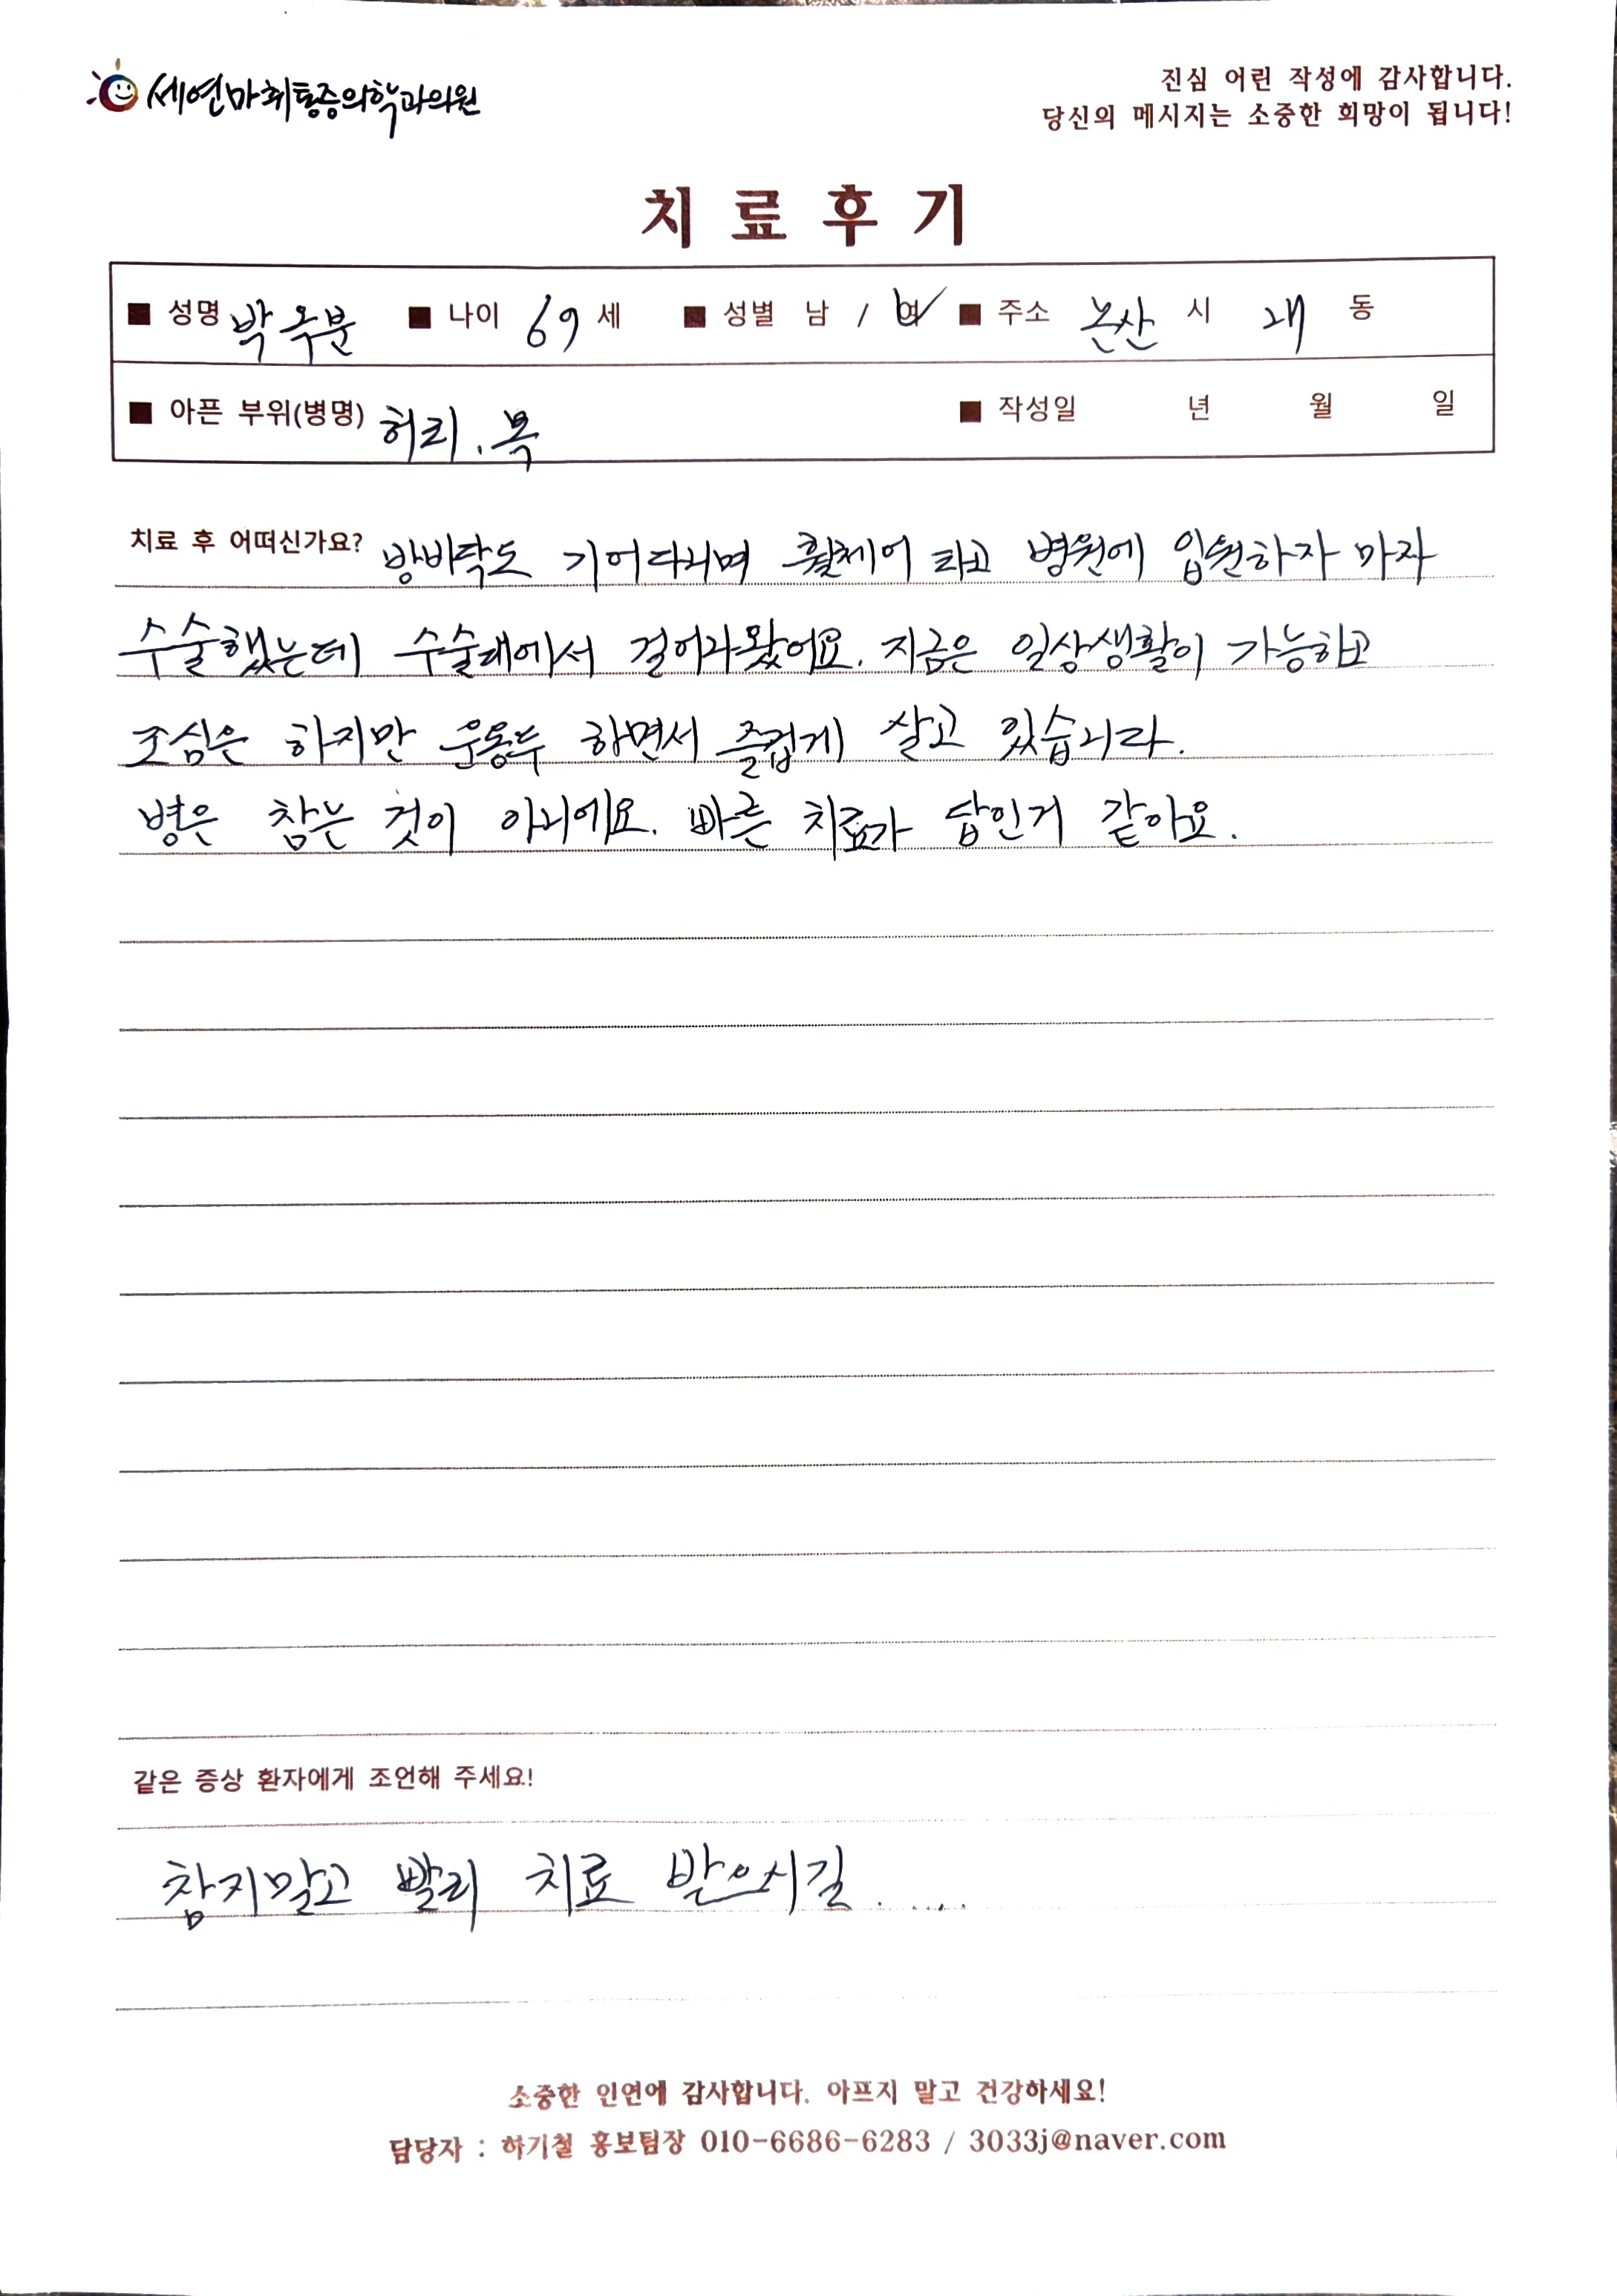 세연마취통증의학과의원
진심 어린 작성에 감사합니다.
당신의 메시지는 소중한 희망이 됩니다!
치료후기
■ 성명 박옥분 ■ 나이 69 세 ■ 성별 남 / 여 ■ 주소 논산 시 내 동
■ 아픈 부위(병명) 허리.목 ■ 작성일 년 월 일
치료 후 어떠신가요? 방바닥도 기어다니며 휠체어 타고 병원에 입원하자 마자
수술했는데 수술대에서 걸어나왔어요. 지금은 일상생활이 가능하고
조심은 하지만 운동두 하면서 즐겁게 살고 있습니다.
병은 참는 것이 아니에요. 빠른 치료가 답인거 같아요.
같은 증상 환자에게 조언해 주세요!
참지말고 빨리 치료 받으시길......
소중한 인연에 감사합니다. 아프지 말고 건강하세요!
담당자 : 하기철 홍보팀장 010-6686-6283 / 3033j@naver.com